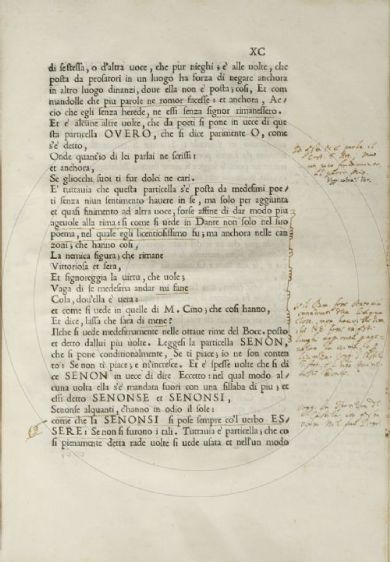 XC
di se stessa, o d'altra uoce, che pur nieghi; e' alle uolte, che
posta da prosatori in un luogo ha forza di negare anchora
in altro luogo dinanzi, doue ella non e' posta; cosi, Et com
mandolle che piu parole ne romor facesse: et anchora, Ac/
cio che egli senza herede, ne essi senza signor rimanessero.
Et e' alcune altre uolte, che da poeti si pone in uece di que
sta particella OVERO, che si dice parimente O, come
s'e' detto,
Onde quant'io di lei parlai ne scrissi:
et anchora,
Se gliocchi suoi ti fur dolci ne cari.
E' tuttauia che questa particella s'e' posta da medesimi poe/
ti senza niun sentimento hauere in se, ma solo per aggiunta
et quasi finimento ad altra uoce, forse affine di dar modo piu
ageuole alla rima: si come si uede in Dante non solo nel suo
poema, nel quale egli licentiosissimo fu; ma anchora nelle can
zoni; che hanno cosi,
La nemica figura; che rimane
Vittoriosa et fera,
Et signoreggia la uirtu, che uole;
Vaga di se medesima andar mi fane
Cola, dou'ella e' uera:
et come si uede in quelle di M. Cino; che cosi hanno,
Et dice, lassa che sara di mene?
Ilche si uede medesimamente nelle ottaue rime del Bocc. posto
et detto dallui piu uolte. Leggesi la particella SENON,
che si pone conditionalmente, Se ti piace; io ne son conten
to: Se non ti piace, e m'incresce. Et e' spesse uolte che si di
ce SENON in uece di dire Eccetto: nel qual modo al/
cuna uolta ella s'e' mandata fuori con una sillaba di piu; et
essi detto SENONSE et SENONSI,
Senonse alquanti, c'hanno in odio il sole:
come che la SENONSI si pose sempre co'l uerbo ES/
SERE: Se non si furono i tali. Tuttauia e' particella; che co
si pienamente detta rade uolte si uede usata et nell'un modo